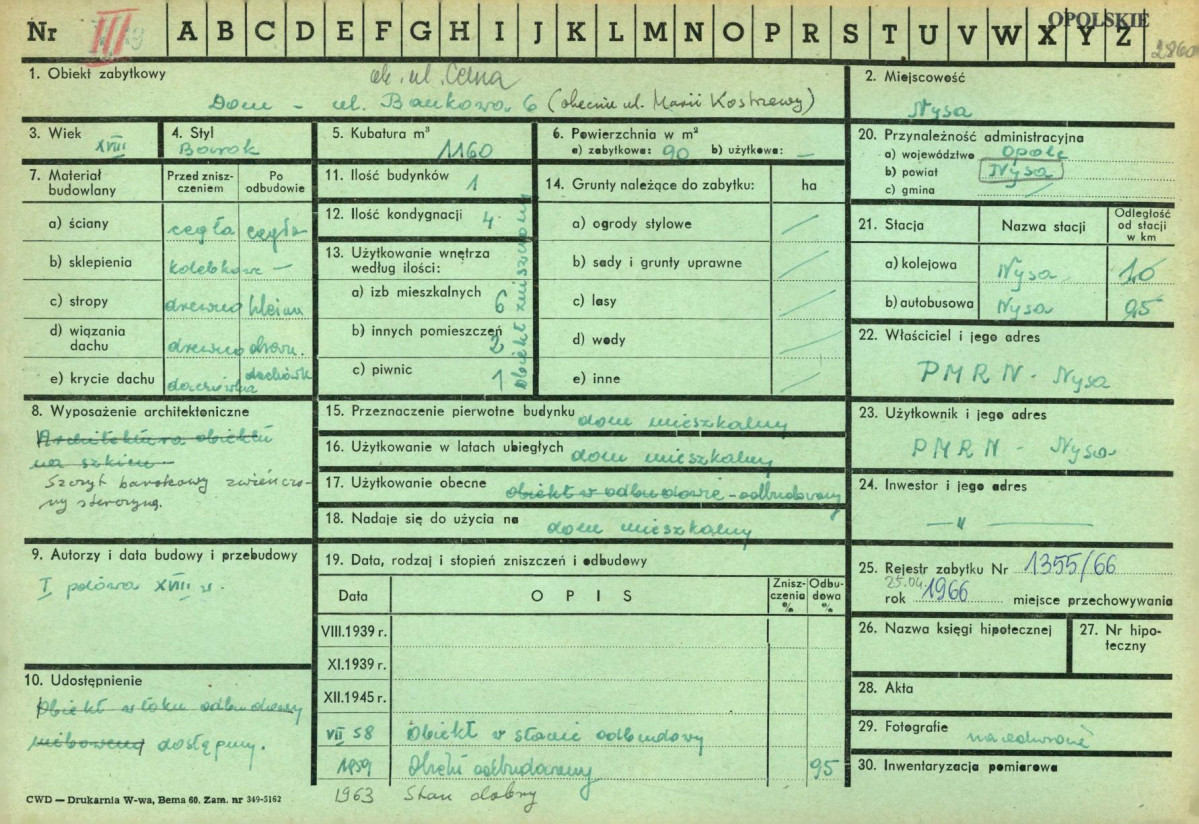 Nr III A B C D E F G H I J K L M N O P R S T U V W X Y Z OPOLSKIE
2860
1. Obiekt zabytkowy
ob. ul. Celna
Dom - ul. Bankowa 6 (obecnie ul. Marii Kostrzewy)
2. Miejscowość
Nysa
3. Wiek
XVIII
4. Styl
Barok
5. Kubatura m³
1160
6. Powierzchnia w m²
a) zabytkowa: 90 b) użytkowa: —
20. Przynależność administracyjna
a) województwo Opole
b) powiat Nysa
c) gmina
7. Materiał budowlany
Przed zniszczeniem
Po odbudowie
a) ściany cegła cegła
b) sklepienia kolebkowe —
c) stropy drewno kleina
d) wiązania dachu drewno drewn.
e) krycie dachu dachówka dachówka
11. Ilość budynków 1
12. Ilość kondygnacji 4
13. Użytkowanie wnętrza według ilości:
a) izb mieszkalnych 6
b) innych pomieszczeń 2
c) piwnic 1
Obiekt zniszczony
14. Grunty należące do zabytku: ha
a) ogrody stylowe
b) sady i grunty uprawne
c) lasy
d) wody
e) inne
21. Stacja
Nazwa stacji
Odległość od stacji w km
a) kolejowa Nysa 1,0
b) autobusowa Nysa 0,5
22. Właściciel i jego adres
PMRN - Nysa
23. Użytkownik i jego adres
PMRN - Nysa
24. Inwestor i jego adres
— " —
8. Wyposażenie architektoniczne
Architektura obiektu
na szkicu
Szczyt barokowy zwieńczo-
ny sterczyną.
15. Przeznaczenie pierwotne budynku dom mieszkalny
16. Użytkowanie w latach ubiegłych dom mieszkalny
17. Użytkowanie obecne obiekt w odbudowie - odbudowany
18. Nadaje się do użycia na dom mieszkalny
9. Autorzy i data budowy i przebudowy
I połowa XVIII w.
19. Data, rodzaj i stopień zniszczeń i odbudowy
Data
OPIS
Zniszczenia %
Odbudowa %
VIII.1939 r.
XI.1939 r.
XII.1945 r.
VII 58 Obiekt w stanie odbudowy
1959 Obiekt odbudowany 95
1963 Stan dobry
10. Udostępnienie
Obiekt w toku odbudowy
dostępny.
25. Rejestr zabytku Nr 1355/66
25.04.
rok 1966 miejsce przechowywania
26. Nazwa księgi hipotecznej
27. Nr hipoteczny
28. Akta
29. Fotografie na odwrocie
30. Inwentaryzacja pomiarowa
CWD — Drukarnia W-wa, Bema 60. Zam. nr 349-5162